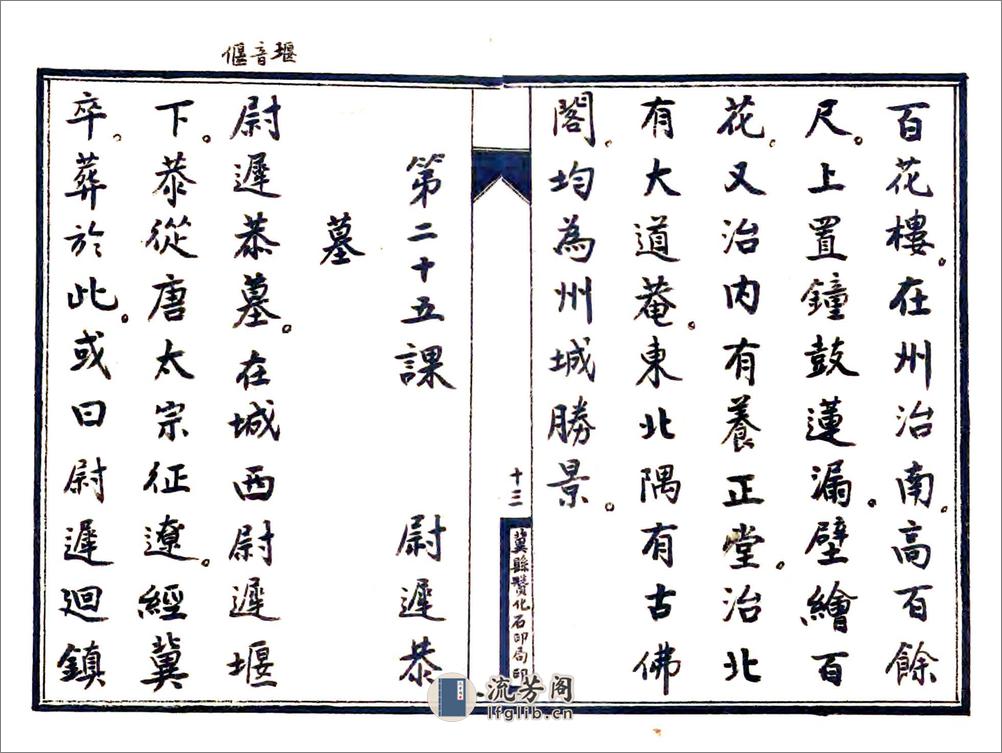 百花樓。在州治南。高百餘
尺。上置鐘鼓蓮漏。壁繪百
花。又治内有養正堂。治北
有大道菴。東北隅有古佛
閣。均為州城勝景。
十三
冀縣贊化石印局印
第二十五課　尉遲恭
墓
堰音偃
尉遲恭墓。在城西尉遲堰
下。恭從唐太宗征遼。經冀
卒。葬於此。或曰尉遲迴鎮
流芳阁
lfglib.cn